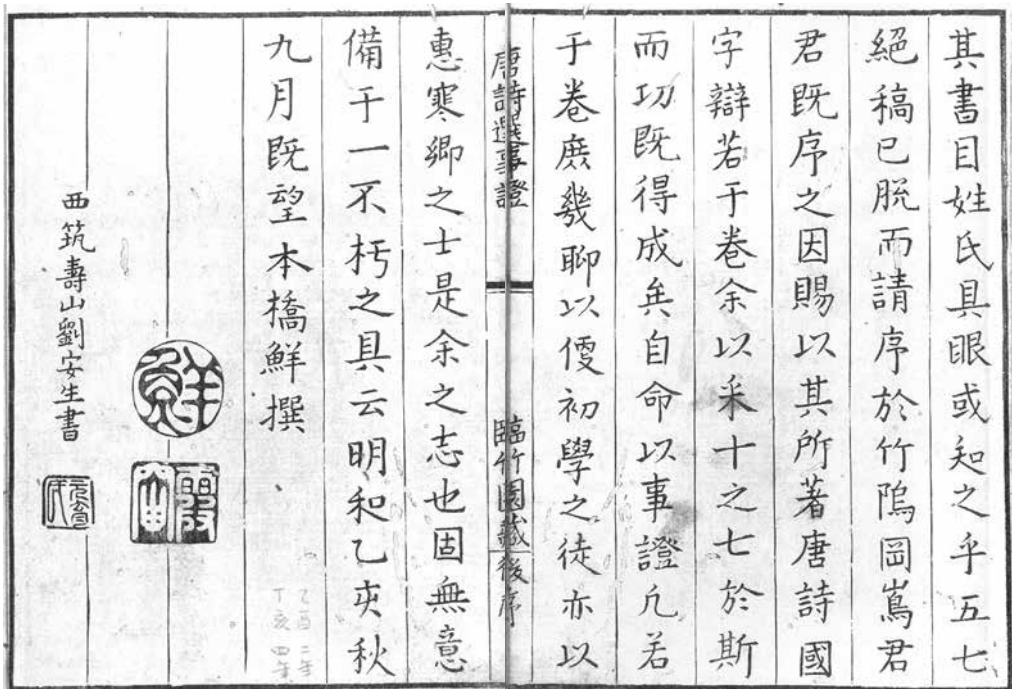 其書目姓氏具眼或知之乎五七
絕稿已脫而請序於竹隖岡嶌君
君既序之因賜以其所著唐詩國
字辯若于卷余以采十之七於斯
而功既得成矣自命以事證凡若
于卷庶幾聊以便初學之徒亦以
唐詩選事證 臨竹園藏 後序
惠寒鄉之士是余之志也固無意
備于一不朽之具云明和乙亥秋
九月既望本橋鮮撰
乙酉 二年
丁亥 四年
鮮
西筑壽山劉安生書